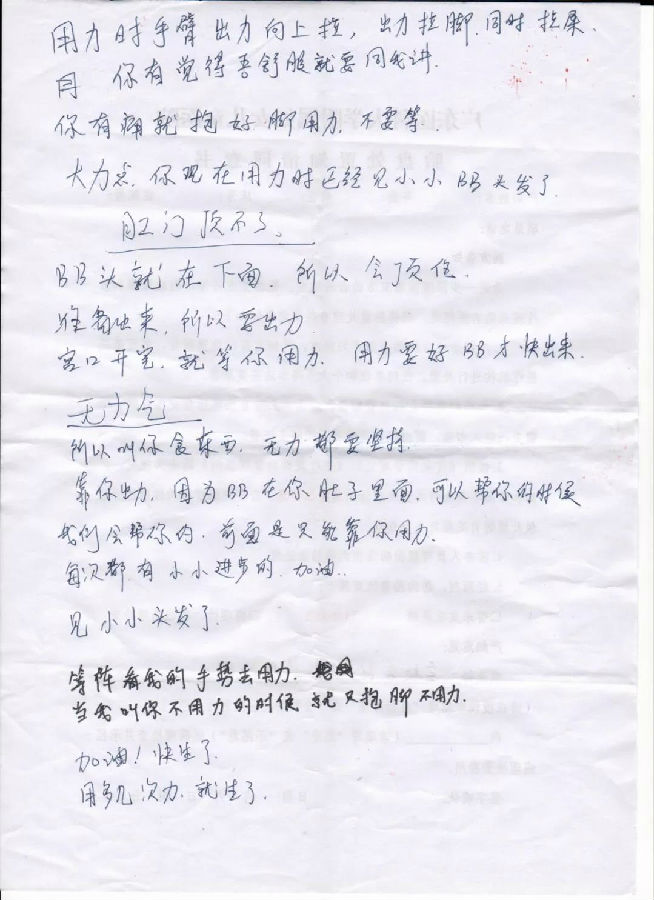 用力时手臂出力向上拉，出力拉脚.同时拉屎.
你有觉得吾舒服就要同我讲.
你有痛就抱好脚用力.不要等.
大力点.你现在用力时已经见小小BB头发了.
肛门顶不了。
BB头就在下面.所以会顶住.
出来,所以要出力
宫口开完.就等你用力.用力要好BB才快出来.
无力气
所以叫你食东西.无力都要坚持.
靠你出力.因为BB在你肚子里面.可以帮你的时候
我们会帮你的.前面是只能靠你用力.
每次都有小小进步的.加油..
见小小头发了.
等阵看我的手势去用力.
当我叫你不用力的时候就又抱脚不用力.
加油!快生了.
用多几次力.就生了.